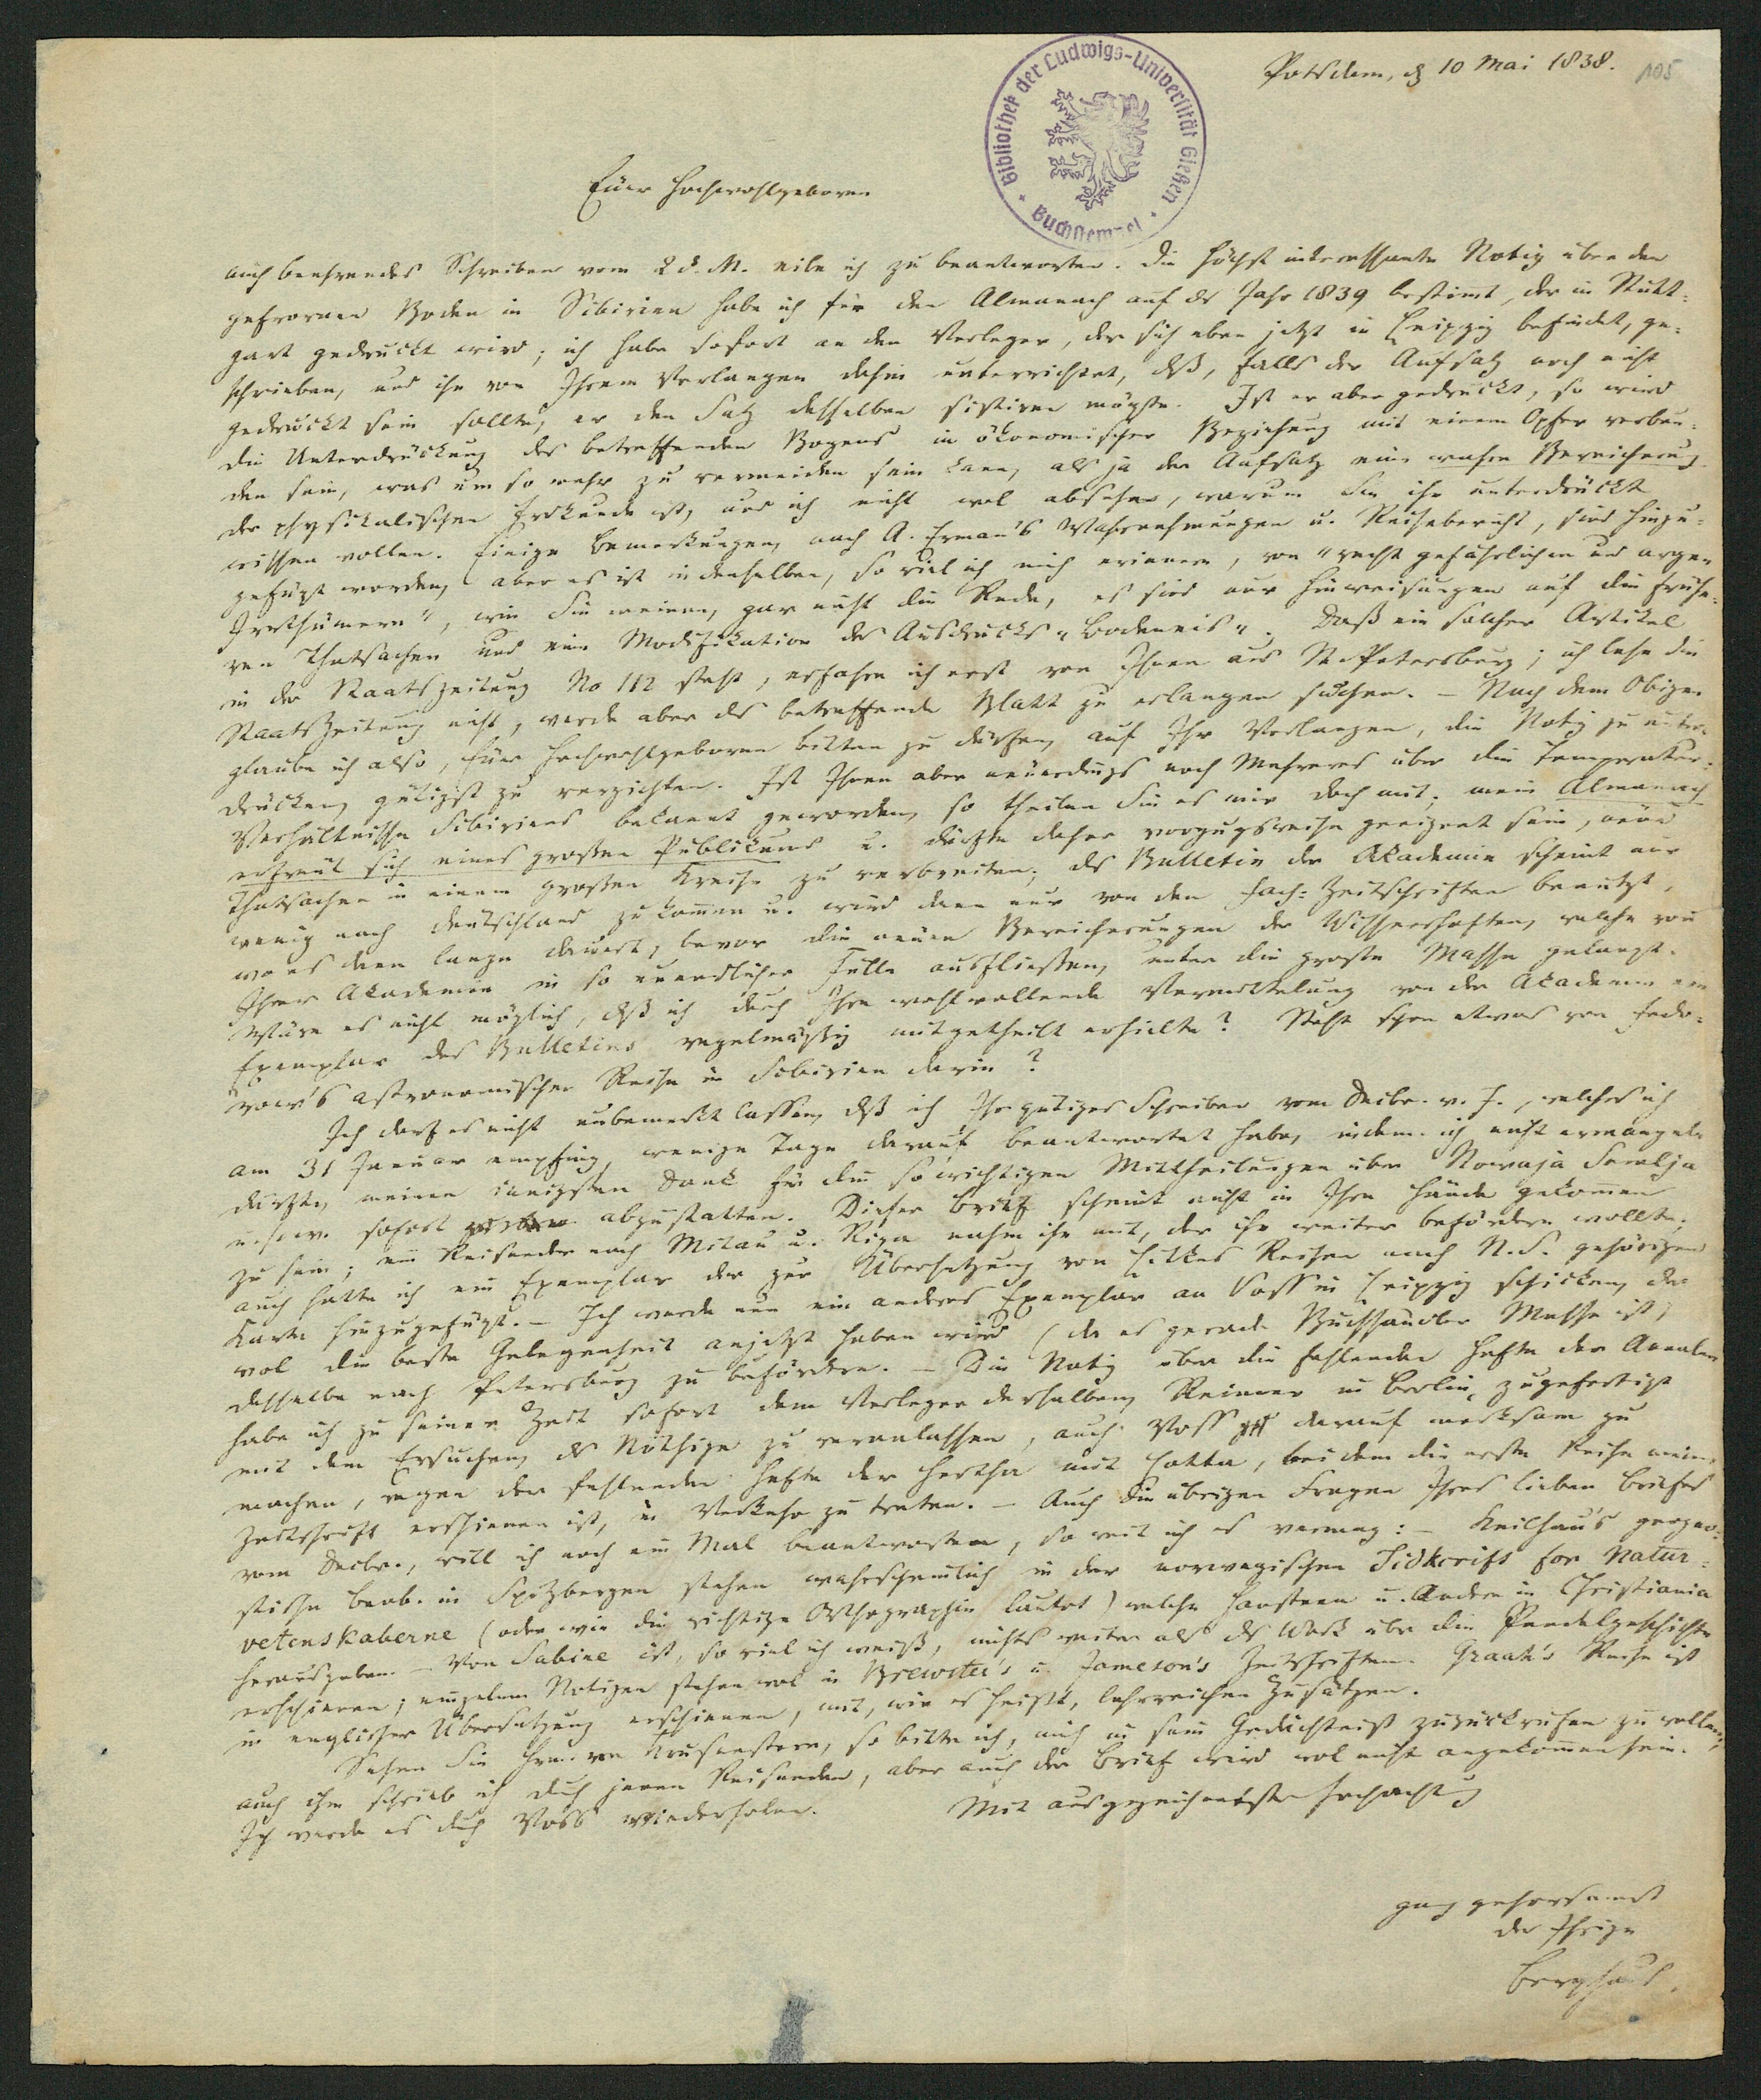 Potsdam, d 10 Mai 1838.
105
Bibliothek der Ludwigs-Universität Gießen
Buchstempel
Euer Hochwohlgeboren
auch beehrendes Schreiben vom 2 d. M. eile ich zu beantworten. Die höchst interessante Notiz über den
gefrornen Boden in Sibirien habe ich für den Almanach auf das Jahr 1839 bestimt, der in Stutt-
gart gedruckt wird; ich habe sofort an den Verleger, der sich eben jetzt in Leipzig befindet, ge-
schrieben, und ihn von Ihrem Verlangen dahin unterrichtet, daß, falls der Aufsatz noch nicht
gedruckt sein sollte, er den Satz desselben sistiren mögte. Ist er aber gedruckt, so wird
die Unterdrückung des betreffenden Bogens in ökonomischer Beziehung mit einem Opfer verbun-
den sein, was um so mehr zu vermeiden sein kann, als ja der Aufsatz eine wahre Bereicherung
der physikalischen Erdkunde ist, und ich nicht wol absehe, warum Sie ihn unterdrückt
wissen wollen. Einige Bemerkungen, nach A. Erman's Wahrnehmungen u. Reisebericht, sind hinzu-
gefügt worden, aber es ist in denselben, so viel ich mich erinnere, von "recht gefährlichen und argen
Irrthümern", wie Sie meinen, gar nicht die Rede, es sind nur Hinweisungen auf die frühe-
ren Thatsachen und eine Modifikation des Ausdrucks "Bodeneis". Daß ein solcher Artikel
in der Staatszeitung No 112 steht, erfahre ich erst von Ihnen aus St. Petersburg; ich lese die
Staatszeitung nicht, werde aber das betreffende Blatt zu erlangen suchen. – Nach dem Obigen
glaube ich also, Euer Hochwohlgeboren bitten zu dürfen, auf Ihr Verlangen, die Notiz zu unter-
drücken, gütigst zu verzichten. Ist Ihnen aber neuerdings noch Mehreres über die Temperatur-
Verhältnisse Sibiriens bekannt geworden, so theilen Sie es mir doch mit; mein Almanach
erfreut sich eines großen Publikums u. dürfte daher vorzugsweise geeignet sein, neue
Thatsachen in einem großen Kreise zu verbreiten; das Bulletin der Akademie scheint nur
wenig nach Deutschland zu komen u. wird dann nur von den Fach-Zeitschriften benutzt,
wo es dann lange dauert, bevor die neuen Bereicherungen der Wissenschaften, welche von
Ihrer Akademie in so unendlicher Fülle ausfließen, unter die große Masse gelangt.
Wäre es nicht möglich, daß ich durch Ihre wohlwollende Vermittelung von der Academie ein
Exemplar des Bulletins regelmäßig mitgetheilt erhielte? Steht schon etwas von Fedo-
row's astronomischer Reise in Sibirien darin?
Ich darf es nicht unbemerkt lassen, daß ich Ihr gütiges Schreiben vom Decbr. v. J., welches ich
am 31 Januar empfing, wenige Tage darauf beantwortet habe, indem ich nicht ermangeln
durfte, meinen innigsten Dank für die so wichtigen Mittheilungen über Nowaja Semlja
u. s. w. sofort abzustatten. Dieser Brief scheint nicht in Ihre Hände gekomen
zu sein; ein Reisender nach Mitau u. Riga nahm ihn mit, der ihn weiter befördern wollte;
auch hatte ich ein Exemplar der zur Übersetzung von Litkes Reisen nach N. S. gehörigen
Karte hinzugefügt. – Ich werde nun ein anderes Exemplar an Voss in Leipzig schicken, der
wol die beste Gelegenheit anjetzt haben wird (da es gerade Buchhändler Messe ist)
dasselbe nach Petersburg zu befördern. – Die Notiz über die fehlenden Hefte der Annalen
habe ich zu seiner Zeit sofort dem Verleger derselben, Reimer in Berlin, zugefertigt
mit dem Ersuchen, das Nöthige zu veranlassen, auch Voss darauf merksam zu
machen, wegen der fehlenden Hefte der Hertha mit Cotta, bei dem die erste Reihe meiner
Zeitschrift erschienen ist, in Verkehr zu treten. – Auch die übrigen Fragen Ihres lieben Briefes
vom Decbr., will ich noch ein Mal beantworten, so weit ich es vermag: – Keilhau's geogno-
stische Beob. in Spitzbergen stehen wahrscheinlich in der norwegischen Tidkcrift for Natur-
vetenskaberne (oder wie die richtige Orthographie lautet) welche Hansteen u. Andere in Christiania
herausgeben. – Von Sabine ist, so viel ich weiß, nichts weiter als das Werk über die Pendelgeschichte
erschienen; einzelne Notizen stehen wol in Brewster's u. Jameson's Zeitschriften. Graah's Reise ist
in englischer Übersetzung erschienen, mit, wie es heißt, lehrreichen Zusätzen.
Sehen Sie Hrn. von Krusenstern, so bitte ich, mich in sein Gedächtniß zurückrufen zu wollen;
auch ihm schrieb ich durch jenen Reisenden, aber auch der Brief wird wol nicht angekomen sein.
Ich werde es durch Voss wiederholen.
Mit ausgezeichnetster Hochachtung
ganz gehorsamst
der Ihrige
Berghaus.